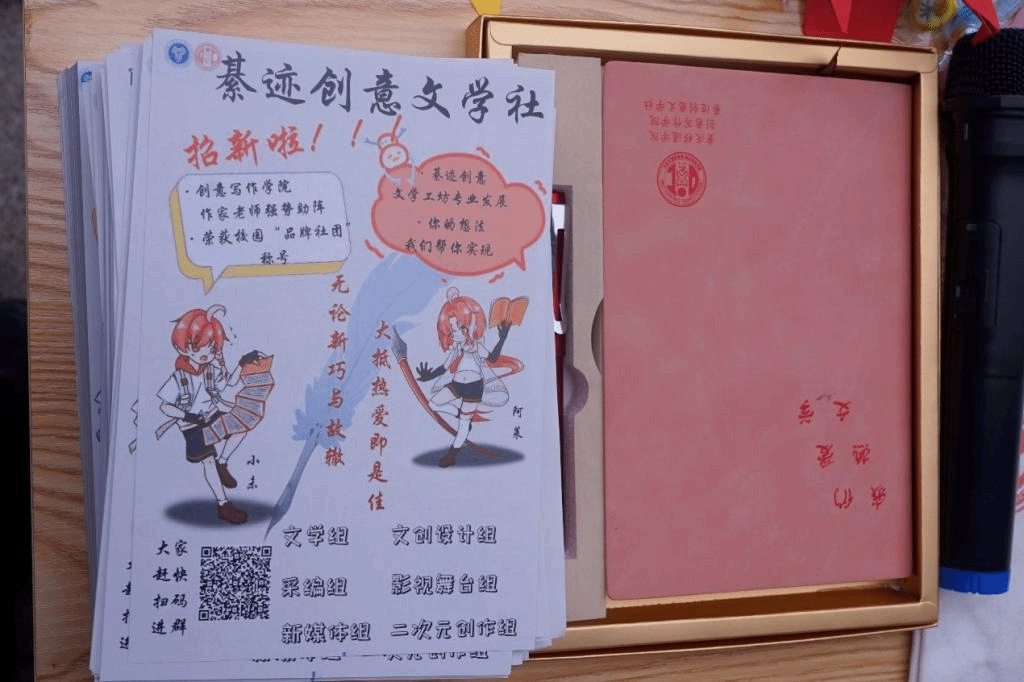 綦迹创意文学社
招新啦！！！
·创意写作学院
作家老师强势助阵
·荣获校园“品牌社团”
称号
·綦迹创意
文学工坊专业发展
·你的想法
我们帮你实现
无论新巧与故辙
大抵热爱即是佳
小未
阿莱
大家
赶快
扫码
进群
文学组
文创设计组
采编组
影视舞台组
新媒体组
二次元创作组
重庆移通学院
创意写作学院
綦迹创意文学社
我们
热爱
文学